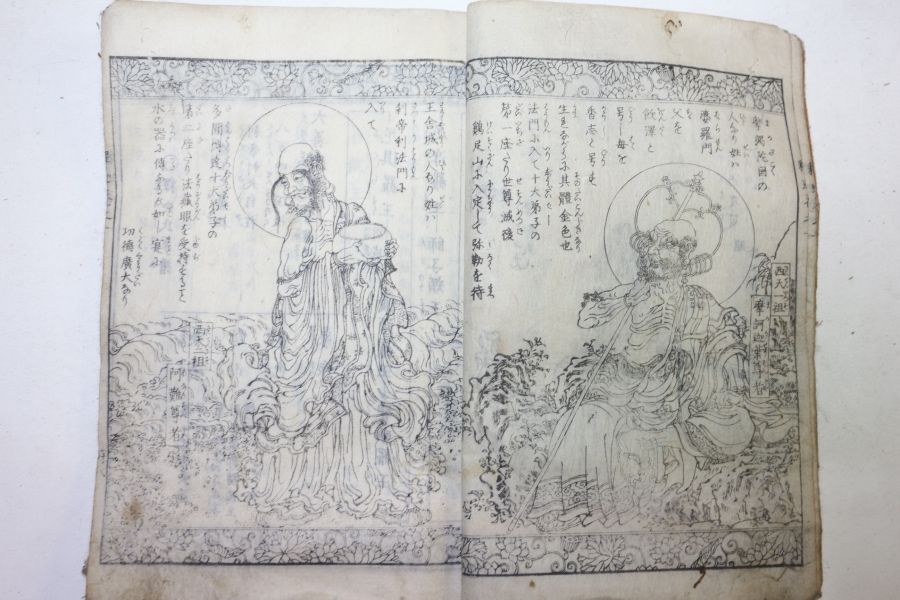 西天一祖
摩訶迦葉尊者
摩竭陀国の
人今の姓ハ
婆羅門
父を
飲澤と
号し母を
香志と号す
生るゝに其體金色也
法門に入て十大弟子の
第一座たり世尊滅後
鶏足山に入定して弥勒を待
王舎城の人なり姓ハ
刹帝利法門に
入て
多聞博達十大弟子の
第二座たり法蔵眼を受持する
水の器に傳ふるが如し寔に
功徳廣大なり
西天二祖
阿難尊者